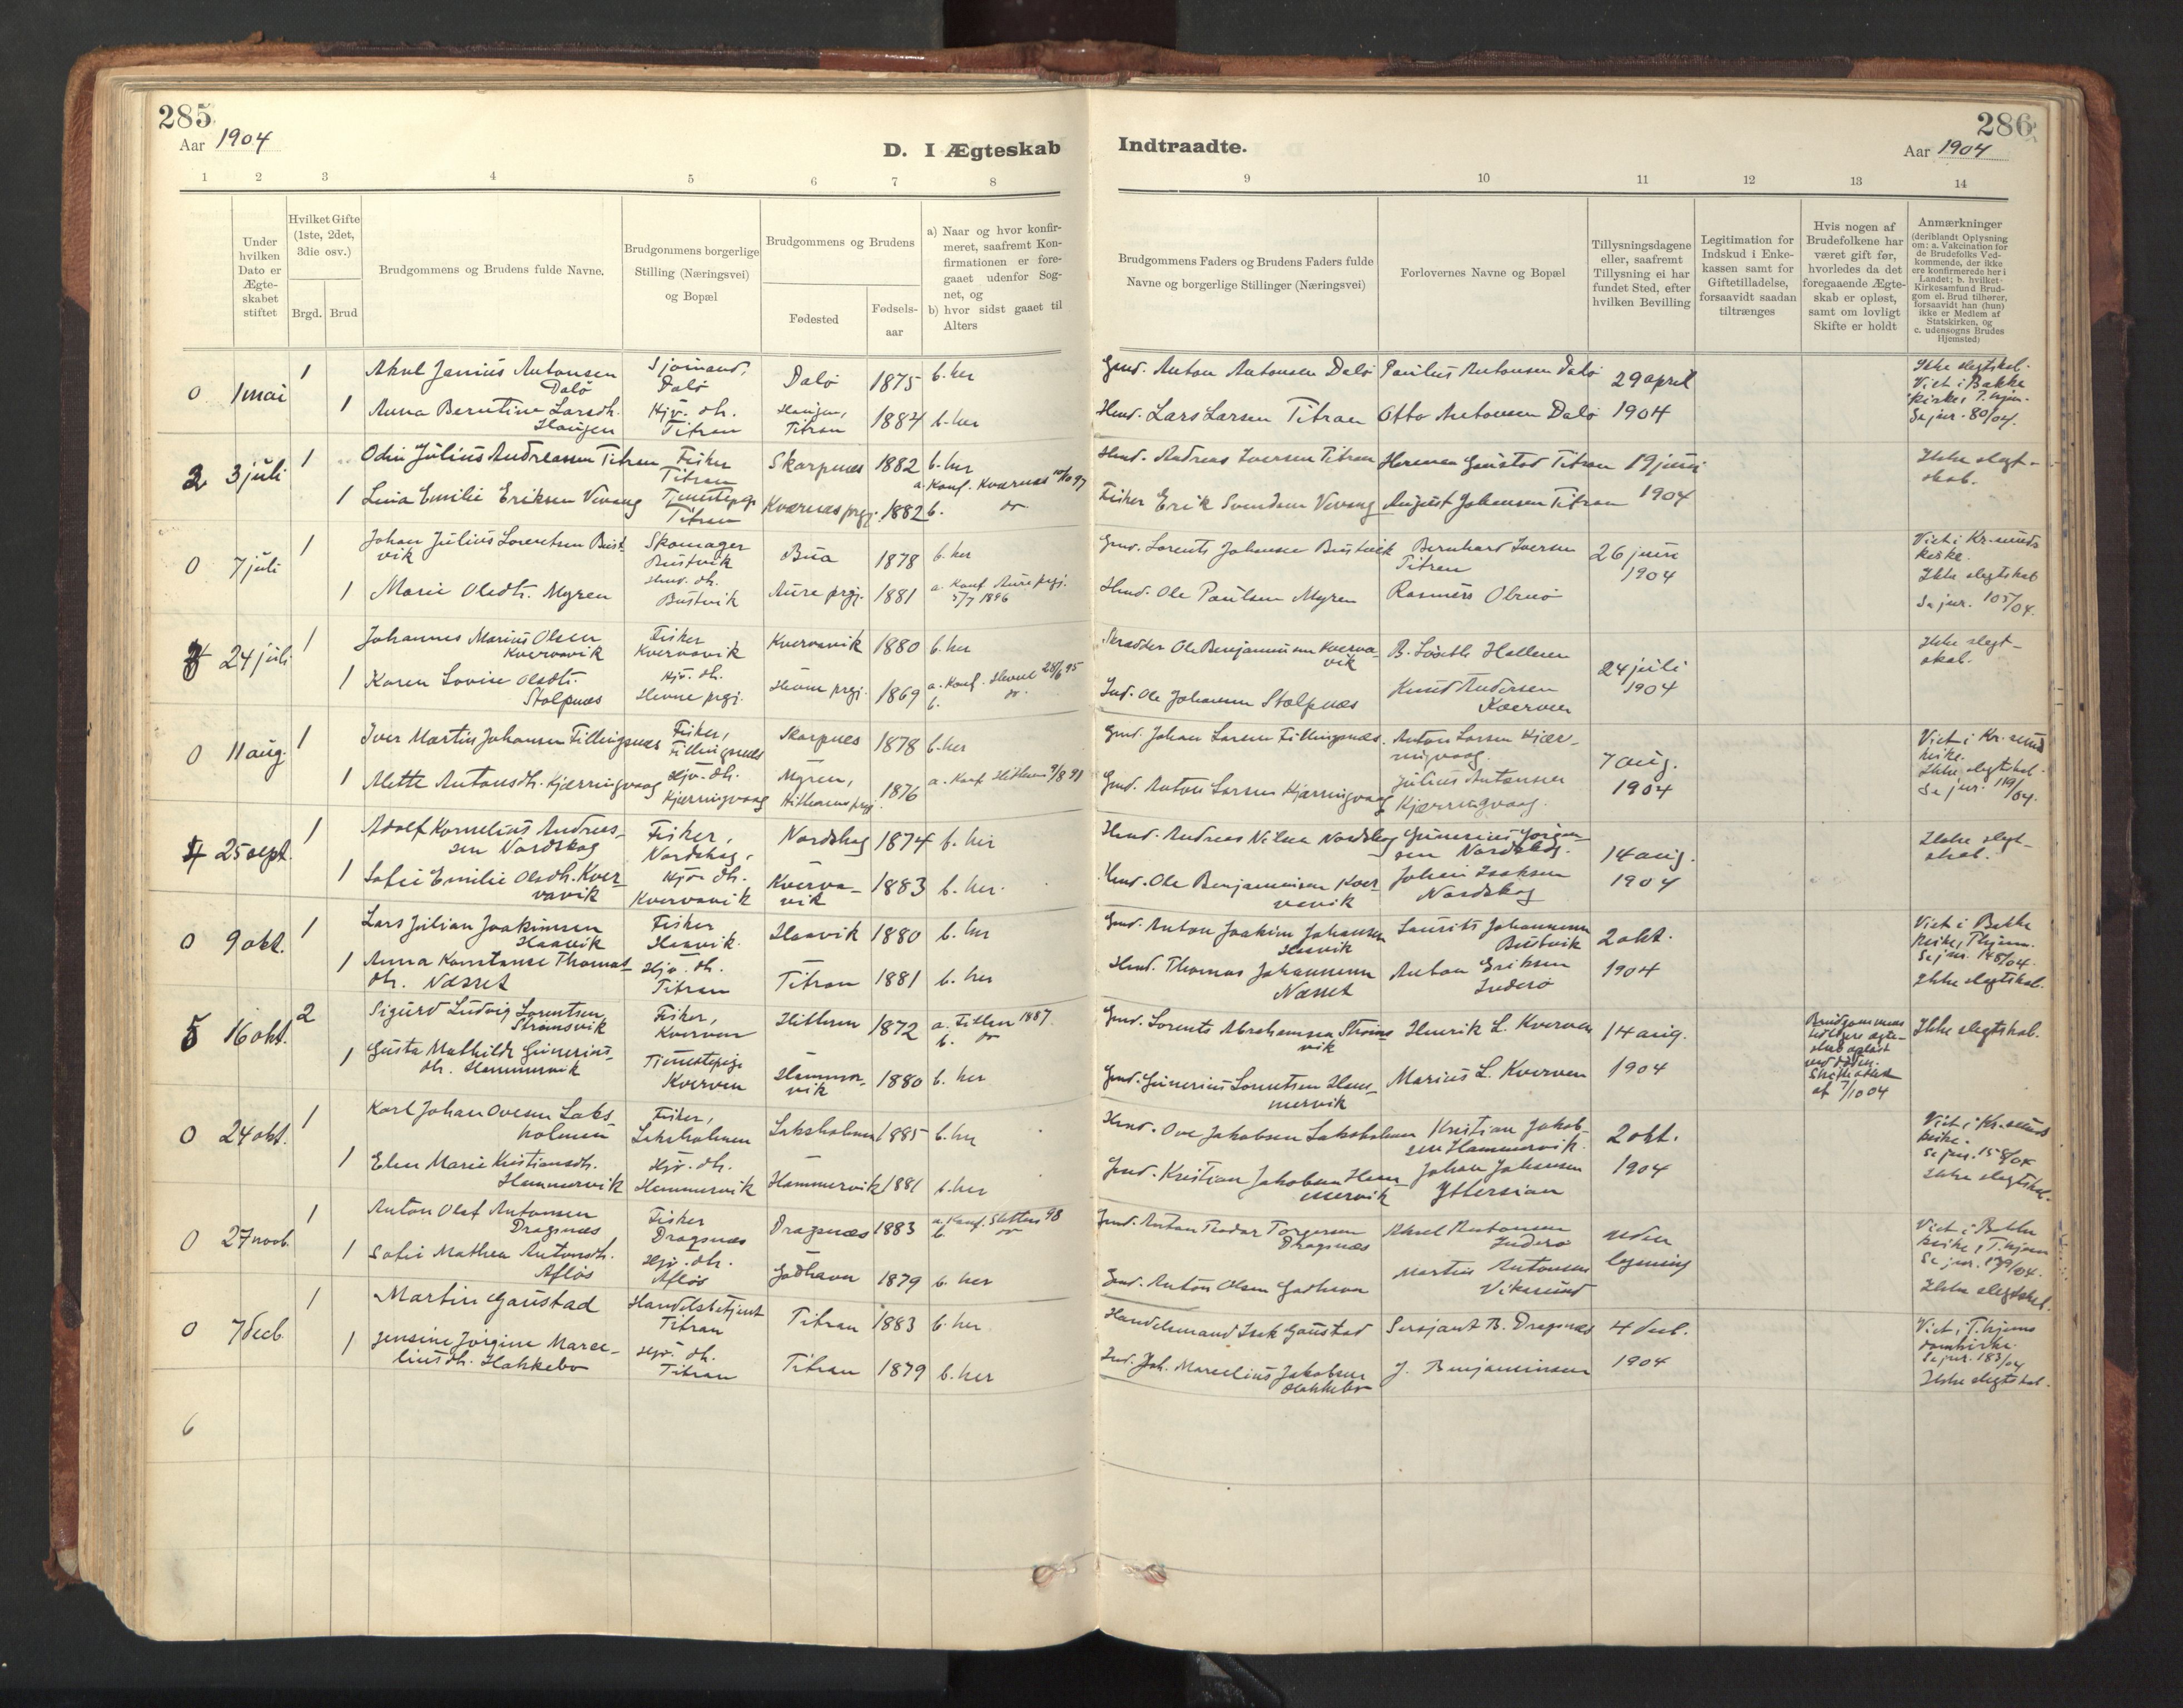 285
Aar 1904
D. I Ægteskab
1 2 3 4 5 6 7 8
Under hvilken Dato er Ægteskabet stiftet
Hvilket Gifte (1ste, 2det, 3die osv.)
Brgd. Brud
Brudgommens og Brudens fulde Navne.
Brudgommens borgerlige Stilling (Næringsvei) og Bopæl
Brudgommens og Brudens
Fødested
Fødselsaar
a) Naar og hvor konfirmeret, saafremt Konfirmationen er foregaaet udenfor Sognet, og
b) hvor sidst gaaet til Alters
0 1 mai 1 Anton Antonsen Dalø Dalø Dalø 1875 b. her
1 Anna Berntine Larsdh. Haugen Hjv. dh. Titran Haugen, Titran 1884 b. her
2 3 juli 1 Odin Julius Andreassen Titran Fisker Titran Skarpnes 1882 b. her
1 Lina Emilie Eriksen Vevang Tjenestepige Titran Kværnes prgj. 1882 a. Konf. Kværnes b. do
0 7 juli 1 Johan Julius Lorentsen Bustvik Skomager Bustvik Bua 1878 b. her
1 Marie Olsdh. Myren Hmd. dh. Bustvik Aure prgj. 1881 a. Konf. Aure prgj. 5/7 1896
3 24 juli 1 Johannes Marius Olsen Kvervavik Fisker Kvervavik Kvervavik 1880 b. her
1 Karen Lovise Olsdt. Stolpnes Hjv. dh. Hevne prgj. Hevne prgj. 1869 a. Konf. Hevne 28/6 95 b. do
0 11 aug. 1 Iver Martin Johansen Fillingsnes Fisker, Fillingsnes Skarpnes 1878 b. her
1 Mette Antonsdh. Kjerringvaag Hjv. dh. Kjerringvaag Myren, Hitterens prgj. 1876 a. Konf. Hitteren 9/8 91
4 25 sept. 1 Adolf Kornelius Andreassen Nordskag Fisker, Nordskag. Nordskag 1874 b. her
1 Sofie Emilie Olsdh. Kvervavik Hjv. dh. Kvervavik Kvervavik 1883 b. her.
0 9 okt. 1 Lars Julian Joakimsen Haavik Fisker Haavik. Haavik 1880 b. her
1 Anna Konstanse Thomasdh. Næsset Hjv. dh. Titran Titran 1881 b. her
5 16 okt. 2 Sigurd Ludvig Lorentsen Strømsvik Fisker, Kverven Hitteren 1872 a. Fillan 1887. b. do
1 Gusta Mathilde Guneriusdh. Hammervik Tjenestepige Kverven Hammervik 1880 b. her
0 24 okt. 1 Karl Johan Ovesen Laksholmen Fisker, Laksholmen Laksholmen 1885 b. her
1 Elen Marie Kristiansdh. Hammervik Hjv. dh. Hammervik Hammervik 1881 b. her
0 27 novb. 1 Anton Olaf Antonsen Dragsnæs Fisker Dragsnæs Dragsnæs 1883 a. Konf. Sletten 98 b. do
1 Sofie Mathea Antonsdh. Afløs Hjv. dh. Afløs Gødhavn 1879 b. her
0 7 decb. 1 Martin Gaustad Handelsbetjent Titran Titran 1883 b. her
1 Jensine Jørgine Marceliusdh. Hakkebo Hjv. dh. Titran Titran 1879 b. her
6
286
Aar 1904
Indtraadte.
9 10 11 12 13 14
Brudgommens Faders og Brudens Faders fulde Navne og borgerlige Stillinger (Næringsvei)
Forlovernes Navne og Bopæl
Tillysningsdagene eller, saafremt Tillysning ei har fundet Sted, efter hvilken Bevilling
Legitimation for Indskud i Enkekassen samt for Giftetilladelse, forsaavidt saadan tiltrænges
Hvis nogen af Brudefolkene har været gift før, hvorledes da det foregaaende Ægteskab er opløst, samt om lovligt Skifte er holdt
Anmærkninger
(deriblandt Oplysning om: a. Vakcination for de Brudefolks Vedkommende, der ikke ere konfirmerede her i Landet; b. hvilket Kirkesamfund Brudgom el. Brud tilhører, forsaavidt han (hun) ikke er Medlem af Statskirken, og c. udensogns Brudes Hjemsted)
Gmd. Anton Antonsen Dalø Paulus Antonsen Dalø 29 april Ikke slegtskab. Viet i Bakke kirke, T.hjem.
Hmd. Lars Larsen Titran Otto Antonsen Dalø 1904 Se jur. 80/04.
Hmd. Andreas Iversen Titran Herman Gaustad Titran 19 juni Ikke slegtskab.
Fisker Erik Svendsen Vevang August Johansen Titran 1904
Gmd. Lorents Johansen Bustvik Bernhard Iversen Titran 26 juni Viet i Kr.sunds kirke.
Hmd. Ole Paulsen Myren Rasmus 1904 Ikke slegtskab Se jur. 105/04.
Skrædder Ole Benjaminsen Kvervavik B. Løseth Hallaren 24 juli Ikke slegtskab.
Ind. Ole Johansen Stolpnæs Knud Andersen Kverven 1904
Gmd. Johan Larsen Fillingsnæs. Anton Larsen Kjærringvaag. 7 aug. Viet i Kr.sund kirke. Ikke slegtskab.
Gmd. Anton Larsen Kjærringvaag Julius Antonsen Kjærringvaag. 1904 Se jur. 119/04.
Hmd. Andreas Nilsen Nordskag Gunerius Jørgensen Nordskag. 14 aug. Ikke slegtskab.
Hmd. Ole Benjaminsen Kvervavik Johan Isaksen Nordskag 1904
Gmd. Anton Joakim Johansen Haavik Laurits Johannesen Bustvik 2 okt. Viet i Bakke kirke, T.hjem. Se jur. 148/04.
Hmd. Thomas Johannesen Næsset Anton Eriksen Inderø 1904 Ikke slegtskab.
Gmd. Lorents Abrahamsen Strømsvik Henrik L. Kverven 14 aug. Brudgommens tidligere ægteskab opløst ved døden. Skifteattest af 7/10 04 Ikke slegtskab.
Gmd. Gunerius Lorentsen Hammervik Marius L. Kverven 1904
Hmd. Ove Jakobsen Laksholmen Kristian Jakobsen Hammervik. 2 okt. Viet i Kr.sunds kirke. Se jur. 158/04
Gmd. Kristian Jakobsen Hammervik Johan Johansen Yttersian 1904 Ikke slegtskab.
Gmd. Anton Teodor Torgersen Dragsnæs Aksel Antonsen Inderø uden Viet i Bakke kirke, T.hjem Se jur. 179/04.
Gmd. Anton Olsen Gødhavn Martin Antonsen Viksund lysning Ikke slegtskab.
Handelsmand Isak Gaustad Sersjant B. Dragsnæs 4 decb. Viet i T.hjems domkirke. Se jur. 183/04
Ind. Joh. Marcelius Jakobsen Hakkebo J. Benjaminsen 1904 Ikke slegtskab.